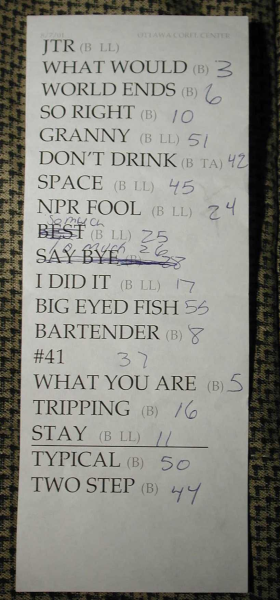 OTTAWA COREL CENTER
JTR (B LL)
WHAT WOULD (B) 3
WORLD ENDS (B) 6
SO RIGHT (B) 10
GRANNY (B LL) 51
DON'T DRINK (B TA) 42
SPACE (B LL) 45
NPR FOOL (B LL) 24
So much
BEST (B LL) 25
SAY BYE (B)
I DID IT (B LL) 17
BIG EYED FISH 55
BARTENDER (B) 8
#41 37
WHAT YOU ARE (B) 5
TRIPPING (B) 16
STAY (B LL) 11
TYPICAL (B) 50
TWO STEP (B) 44